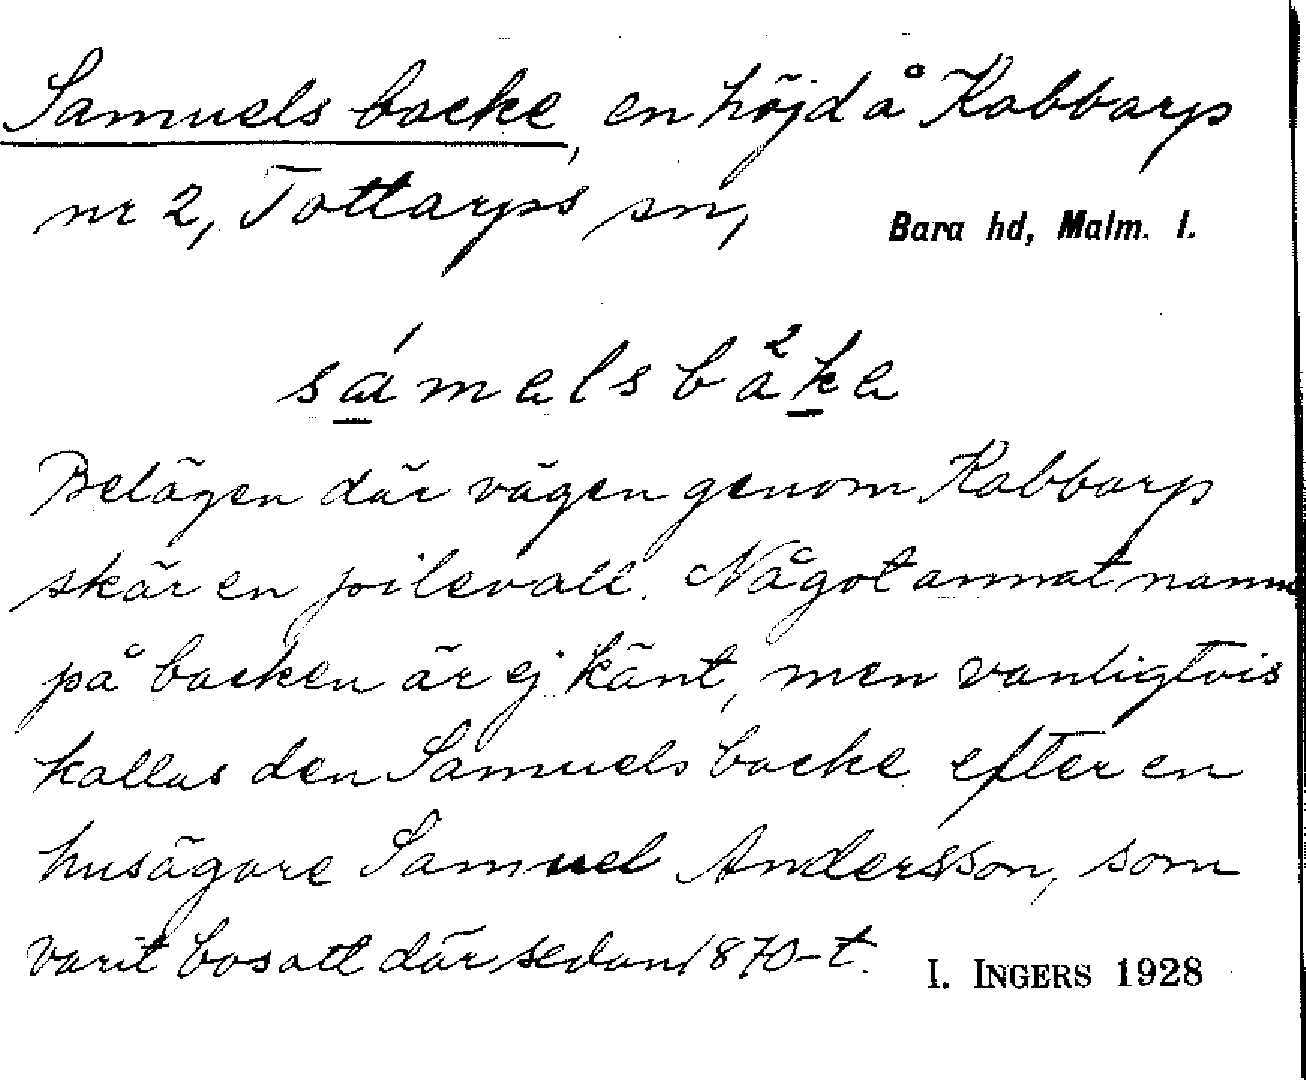 Samuels backe, en höjd å Kabbarp
nr 2, Tottarps sn, Bara hd, Malm. l.
sámelsbåka
Belägen där vägen genom Kabbarp
skär en pilevall. Något annat namn
på backen är ej känt, men vanligtvis
kallas den Samuels backe efter en
husägare Samuel Andersson, som
varit bosatt där sedan 1870-t.
I. INGERS 1928